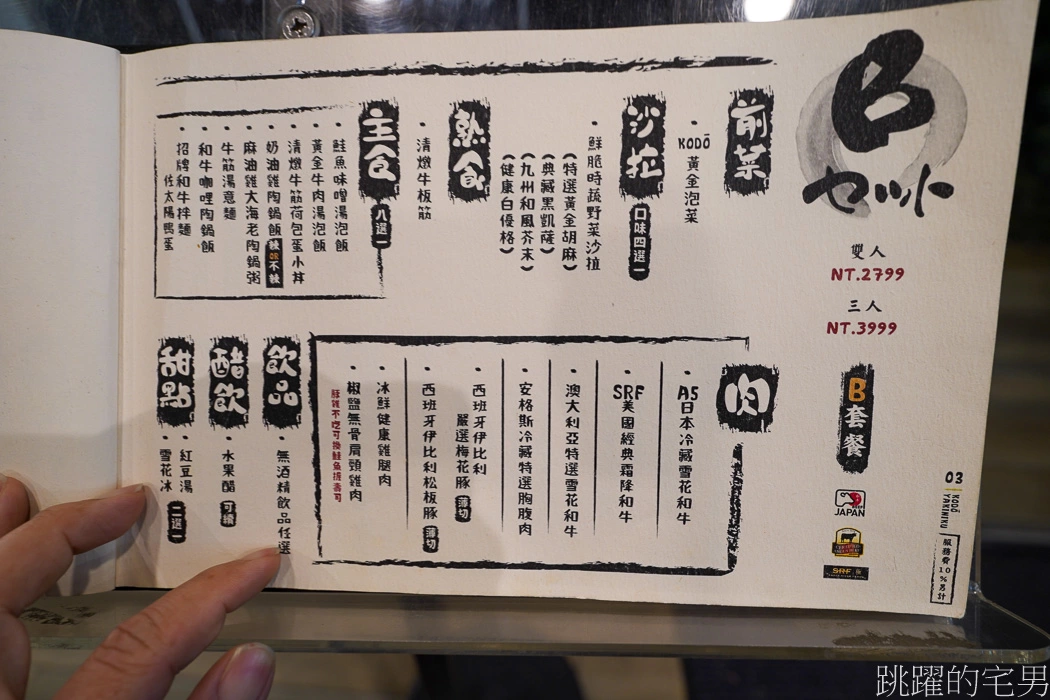 B
セット
雙人
NT.2799
三人
NT.3999
B套餐
JAPAN
SRF
03
KODŌ
YAKINIKU
服務費10%另計
前菜
・KODŌ黃金泡菜
沙拉
口味四選一
・鮮脆時蔬野菜沙拉
(特選黃金胡麻)
(典藏黑凱薩)
(九州和風芥末)
(健康白優格)
熟食
・清燉牛板筋
主食
八選一
・鮭魚味噌湯泡飯
・黃金牛肉湯泡飯
・清燉牛筋荷包蛋小丼
・奶油雞陶鍋飯 辣OR不辣
・麻油雞大海老陶鍋粥
・牛筋湯意麵
・和牛咖哩陶鍋飯
・招牌和牛拌麵
佐太陽鴨蛋
肉
・A5日本冷藏雪花和牛
・SRF美國經典霜降和牛
・澳大利亞特選雪花和牛
・安格斯冷藏特選胸腹肉
・西班牙伊比利
嚴選梅花豚 薄切
・西班牙伊比利松板豚 薄切
・冰鮮健康雞腿肉
・椒鹽無骨肩頸雞肉
豚雞不吃可換鮭魚握壽司
飲品
・無酒精飲品任選
醋飲
・水果醋 可續
甜點
・紅豆湯
・雪花冰
二選一
跳躍的宅男